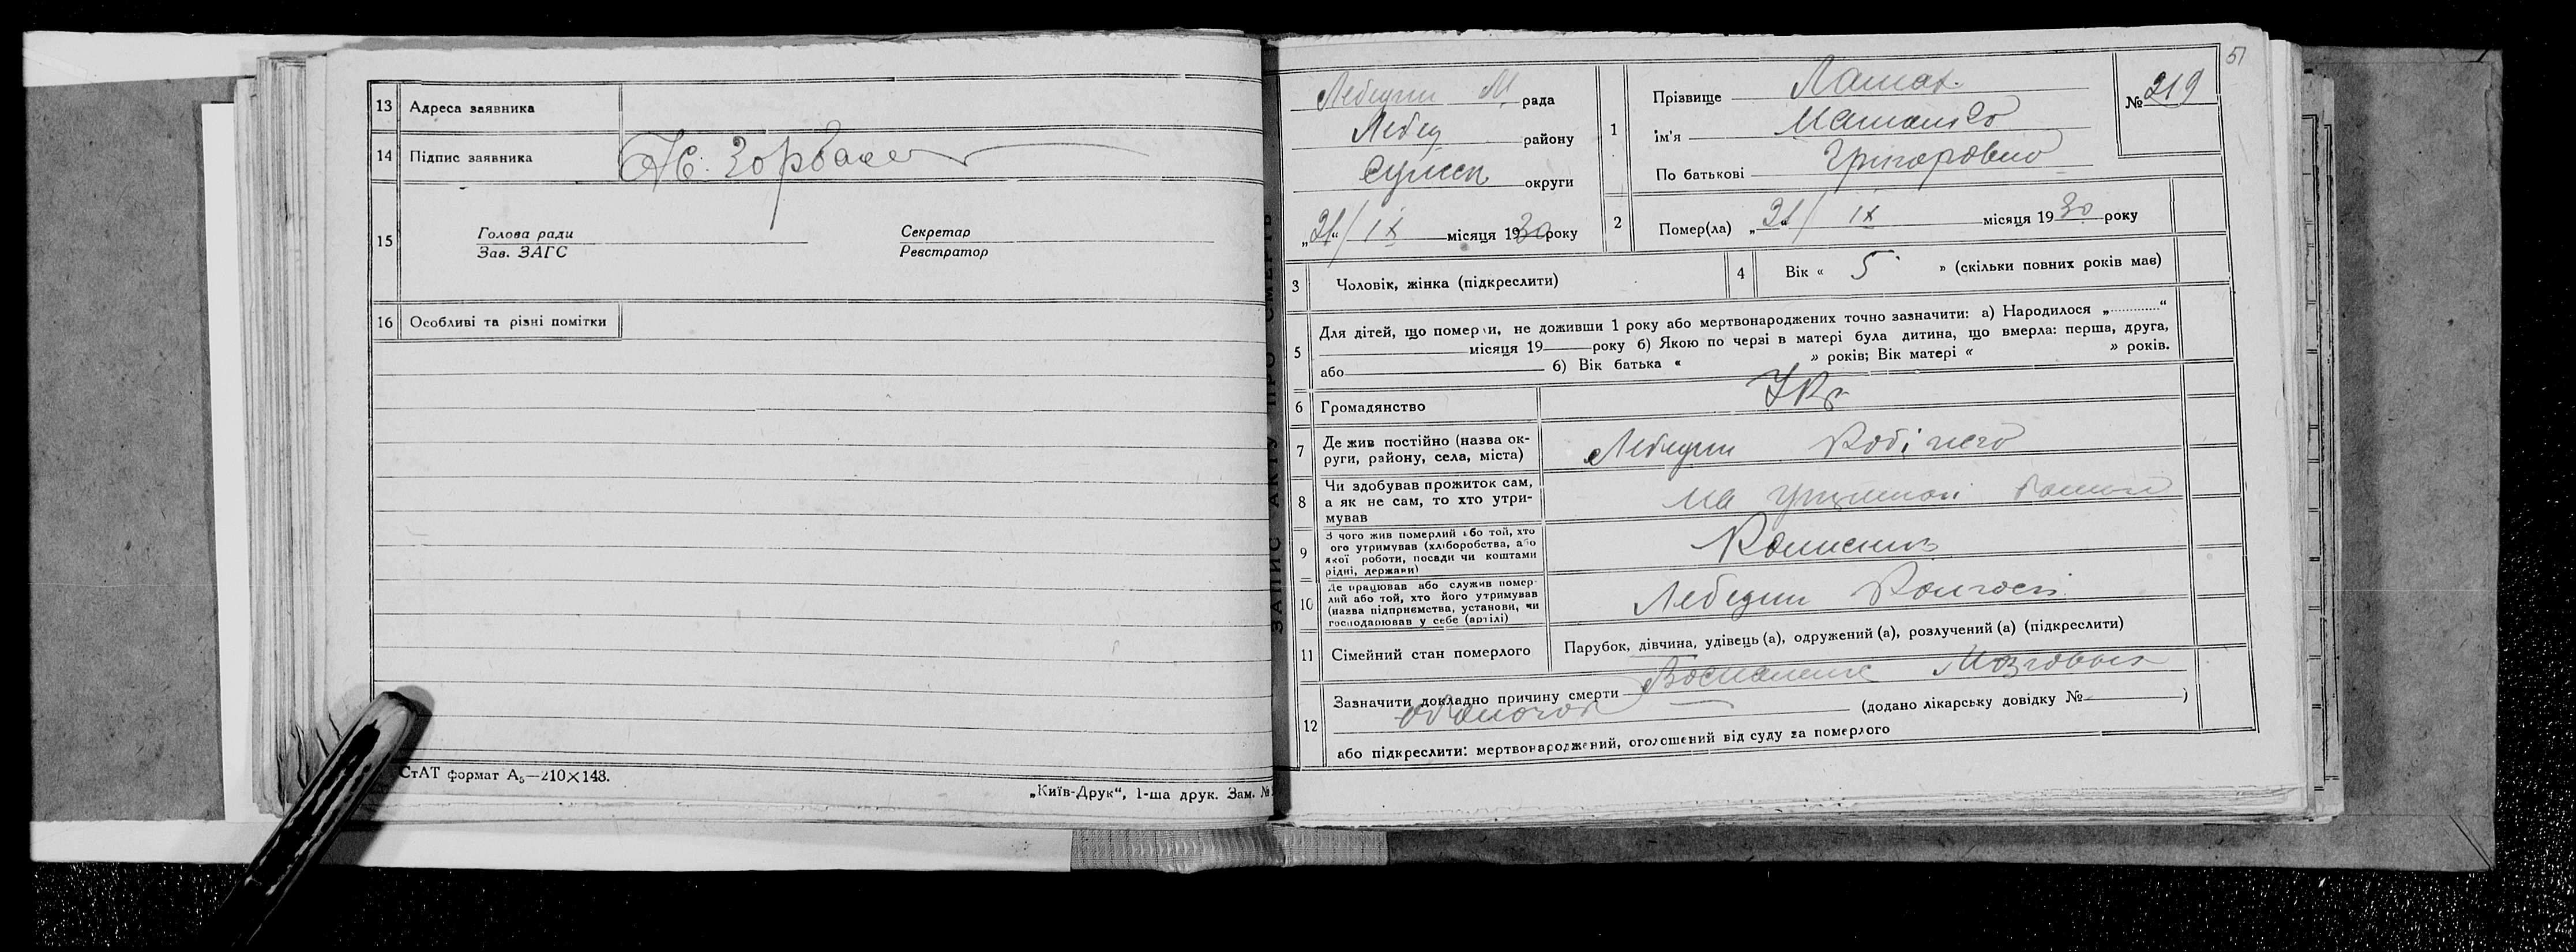 13 Адреса заявника
14 Підпис заявника
15 Голова ради Секретар
Зав. ЗАГС Реєстратор
16 Особливі та різні помітки
СтАТ формат А₅—210×148.
„Київ-Друк“, 1-ша друк. Зам. №
ЗАПИС АКТУ ПРО СМЕРТЬ
51
Лебедин М. рада
Лебед району
Сумськ округи
„21“/ IX місяця 1930 року
1 Прізвище
ім'я
По батькові Григоровна
№ 219
2 Помер(ла) „21“/ IX місяця 1930 року
3 Чоловік, жінка (підкреслити)
4 Вік « 5 » (скільки повних років має)
5 Для дітей, що померли, не доживши 1 року або мертвонароджених точно зазначити: а) Народилося „............“
місяця 19 року б) Якою по черзі в матері була дитина, що вмерла: перша, друга,
або б) Вік батька « » років; Вік матері « » років.
6 Громадянство Укр
7 Де жив постійно (назва округи, району, села, міста) Лебедин
8 Чи здобував прожиток сам, а як не сам, то хто утримував на
9 З чого жив померлий або той, хто його утримував (хліборобства, або якої роботи, посади чи коштами рідні, держави)
10 Де працював або служив померлий або той, хто його утримував (назва підприємства, установи, чи господарював у себе (артілі) Лебедин Колгосп
11 Сімейний стан померлого Парубок, дівчина, удівець (а), одружений (а), розлучений (а) (підкреслити)
12 Зазначити докладно причину смерти Воспаление Мозговых
оболочок (додано лікарську довідку № )
або підкреслити: мертвонароджений, оголошений від суду за померлого